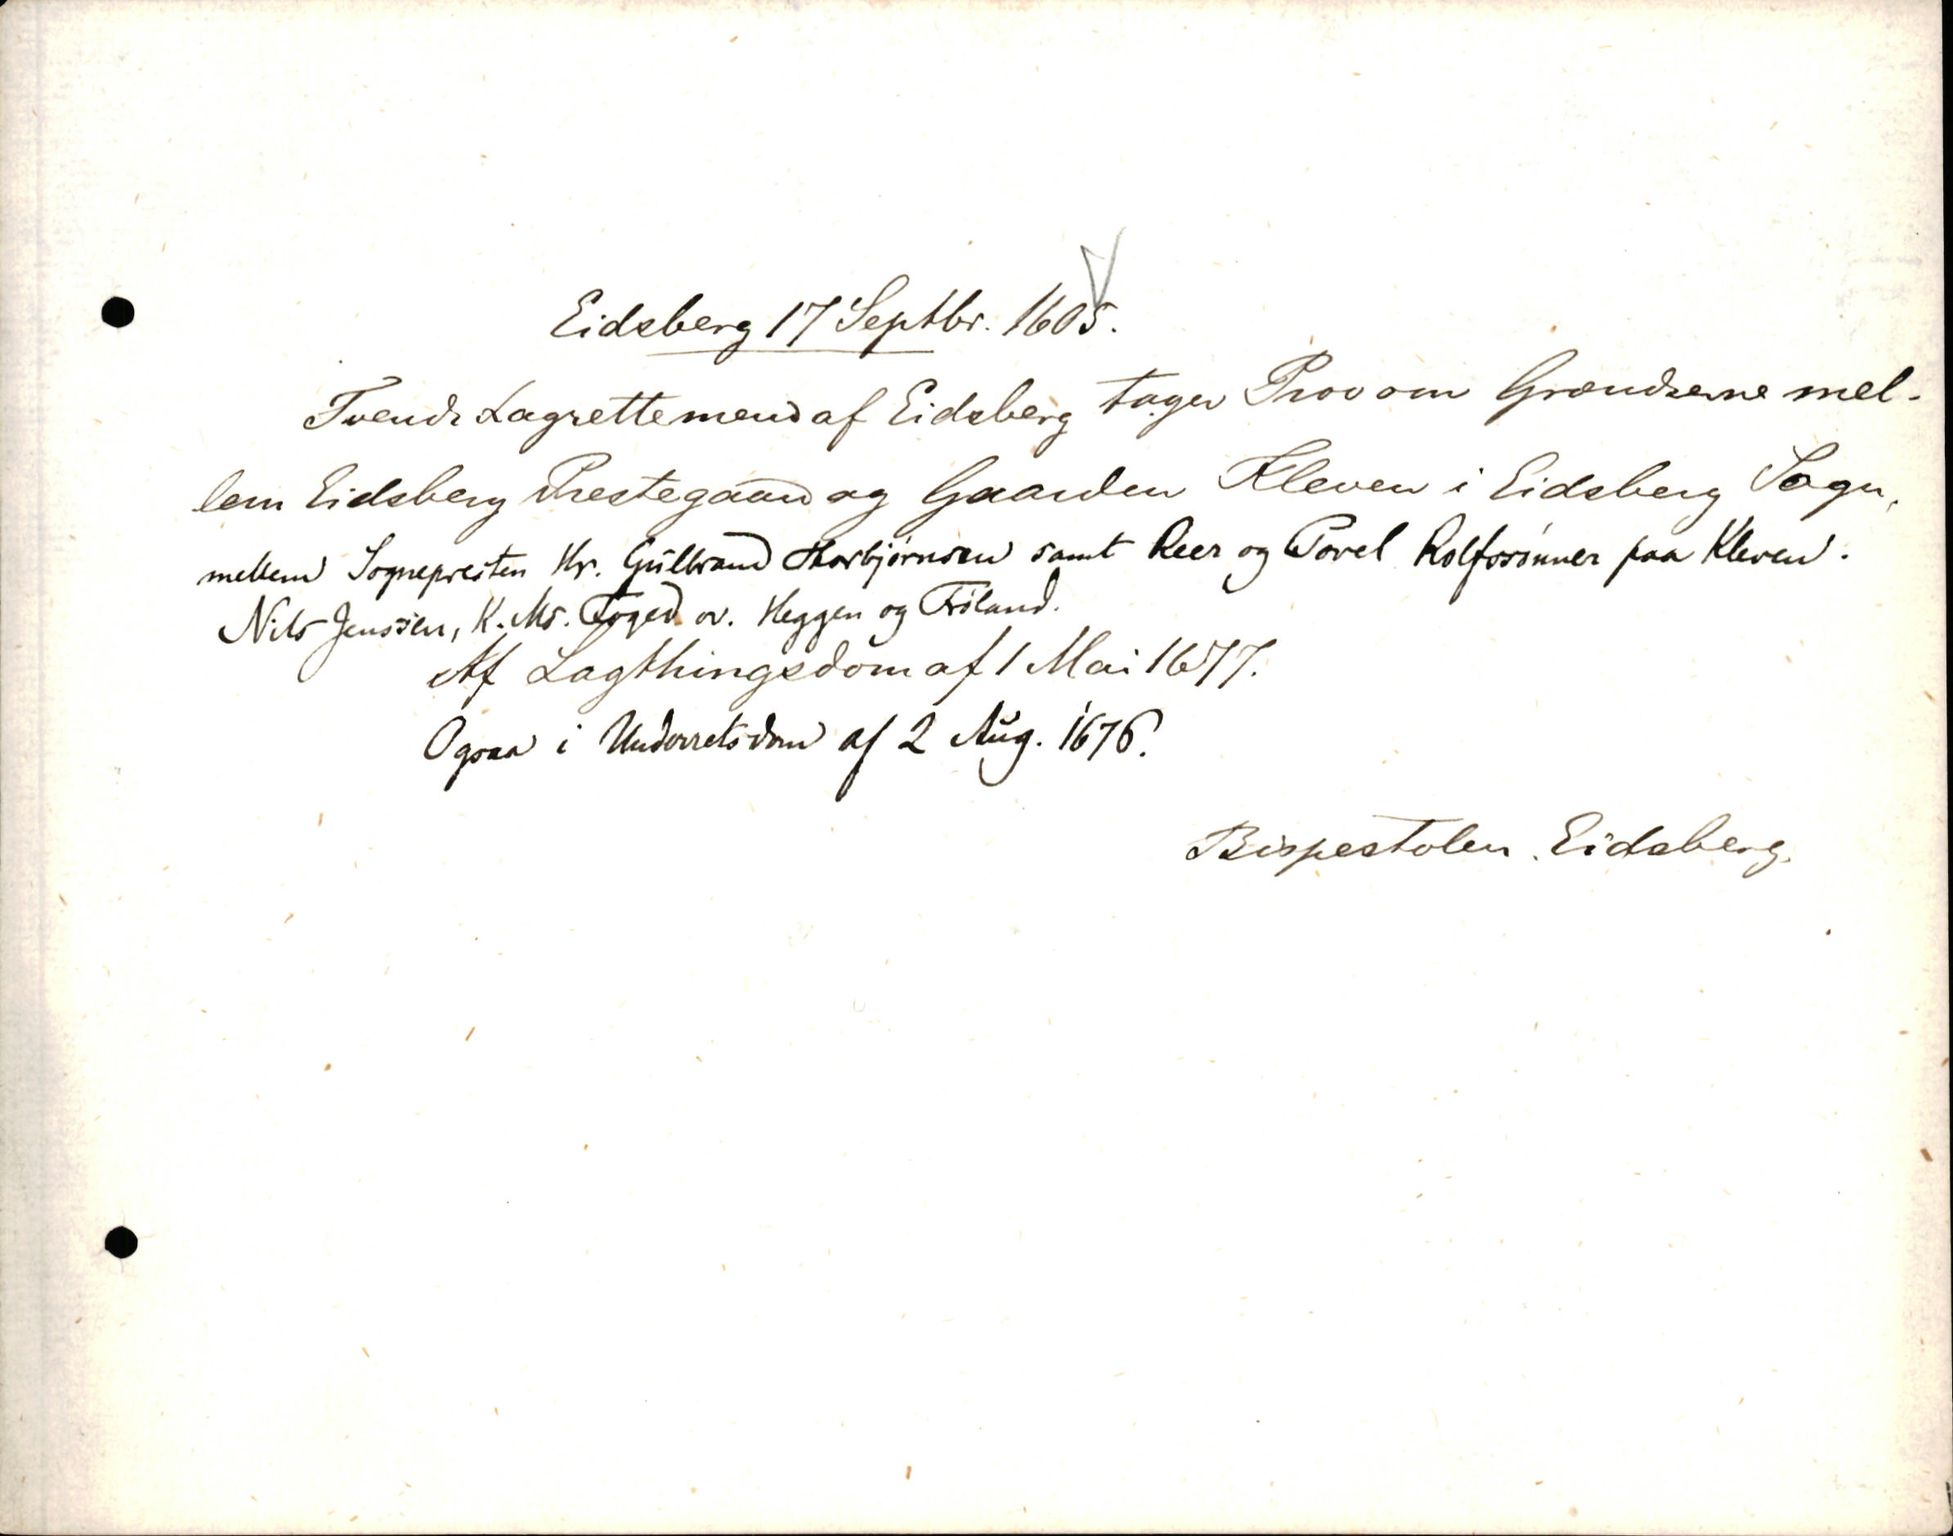 Eidsberg 17 Septbr. 1605.
Tvende Lagrettemend af Eidsberg tager Prov om Grændserne mel-
lem Eidsberg Prestegaard og Gaarden Kleven i Eidsberg Sogn,
mellem Sognepresten Hr. Gulbrand Thorbjørnsen samt Reer og Povel Rolfssønner paa Kleven.
Nils Jenssen, K. Ms. Foged ov. Heggen og Frøland.
Af Lagthingsdom af 1 Mai 1677.
Ogsaa i Underretsdom af 2 Aug. 1676.
Bispestolen. Eidsberg.